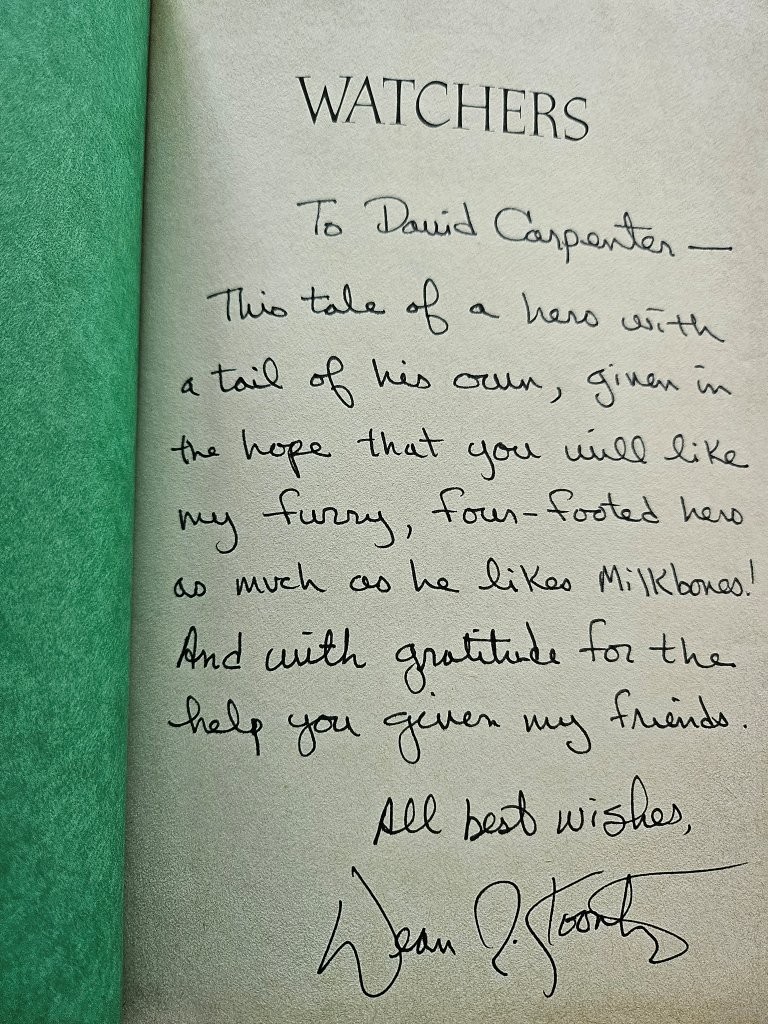 WATCHERS
To David Carpenter —
This tale of a hero with
a tail of his own, given in
the hope that you will like
my furry, four-footed hero
as much as he likes Milkbones!
And with gratitude for the
help you given my friends.
All best wishes,
Dean R. Koontz